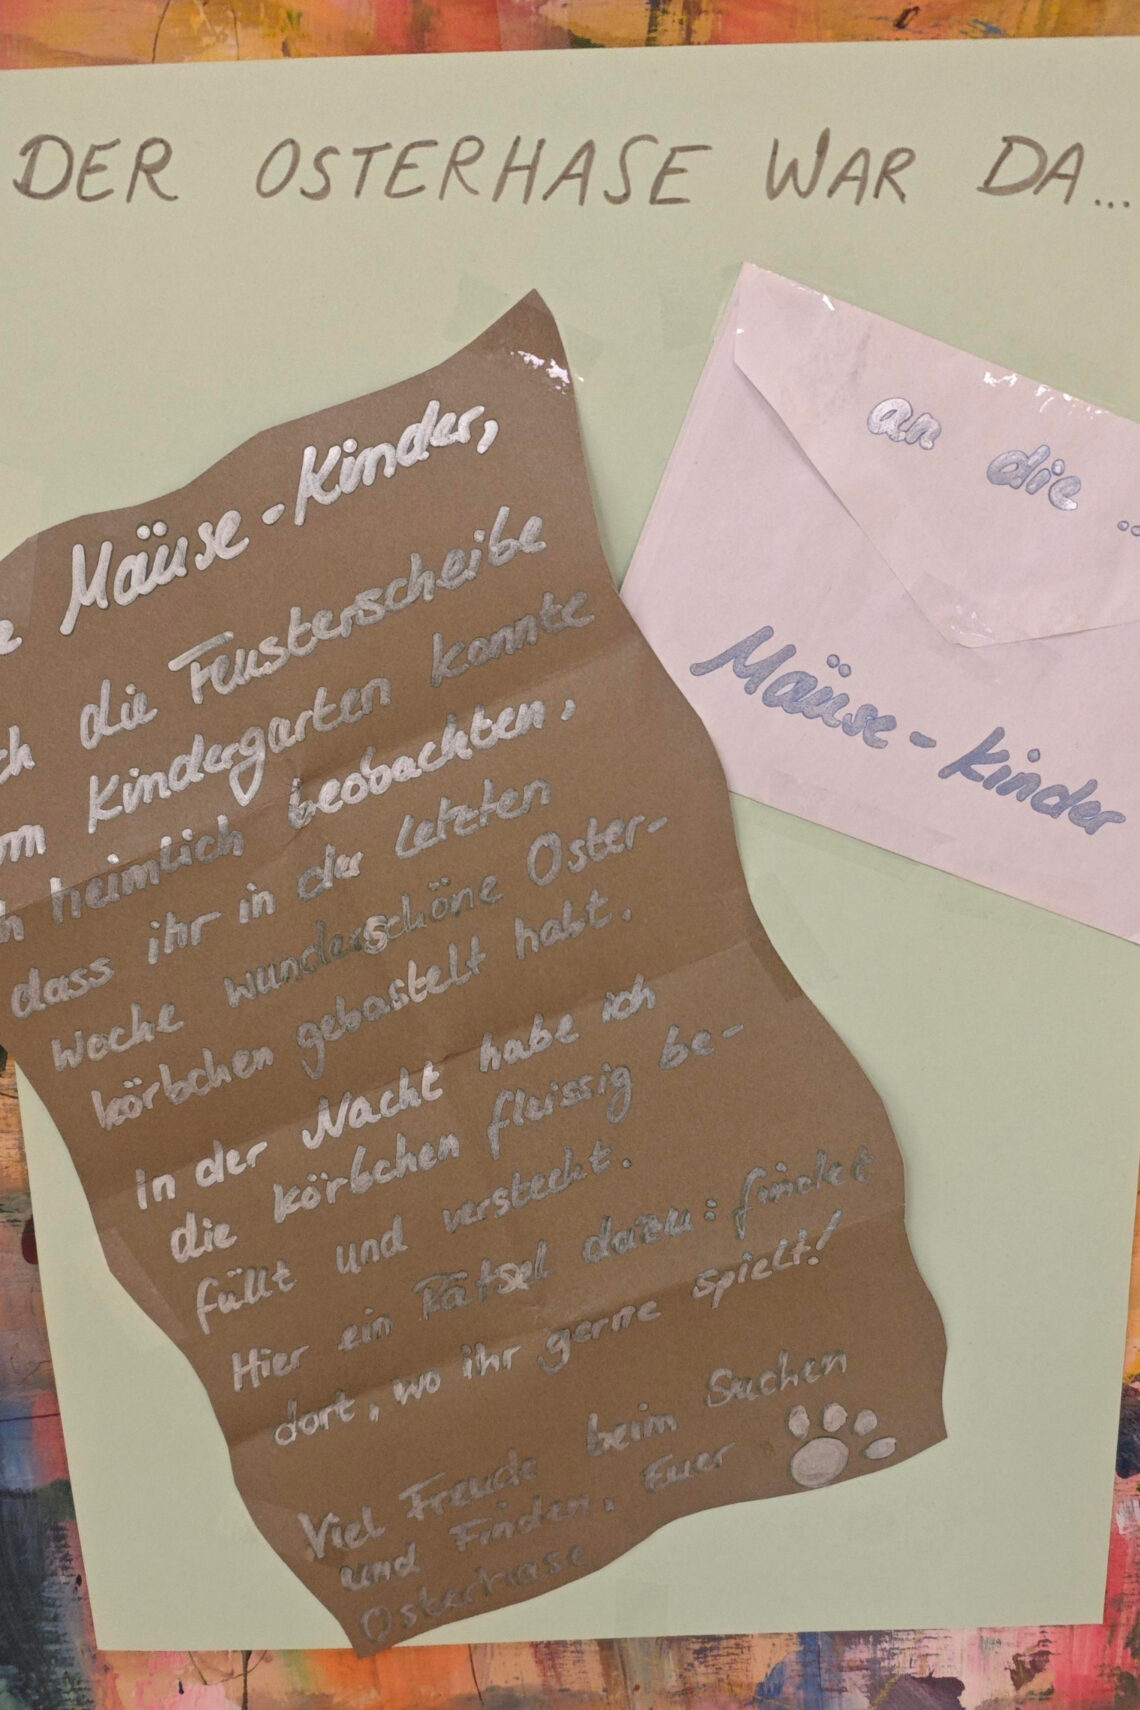 DER OSTERHASE WAR DA...
an die ..
Mäuse-Kinder
Mäuse-Kinder,
die Fensterscheibe
Kindergarten konnte
heimlich beobachten,
dass ihr in der letzten
Woche wunderschöne Oster-
körbchen gebastelt habt.
In der Nacht habe ich
die Körbchen fleissig be-
füllt und versteckt.
Hier ein Rätsel dazu: findet
dort, wo ihr gerne spielt!
Viel Freude beim Suchen
und Finden, Euer
Osterhase